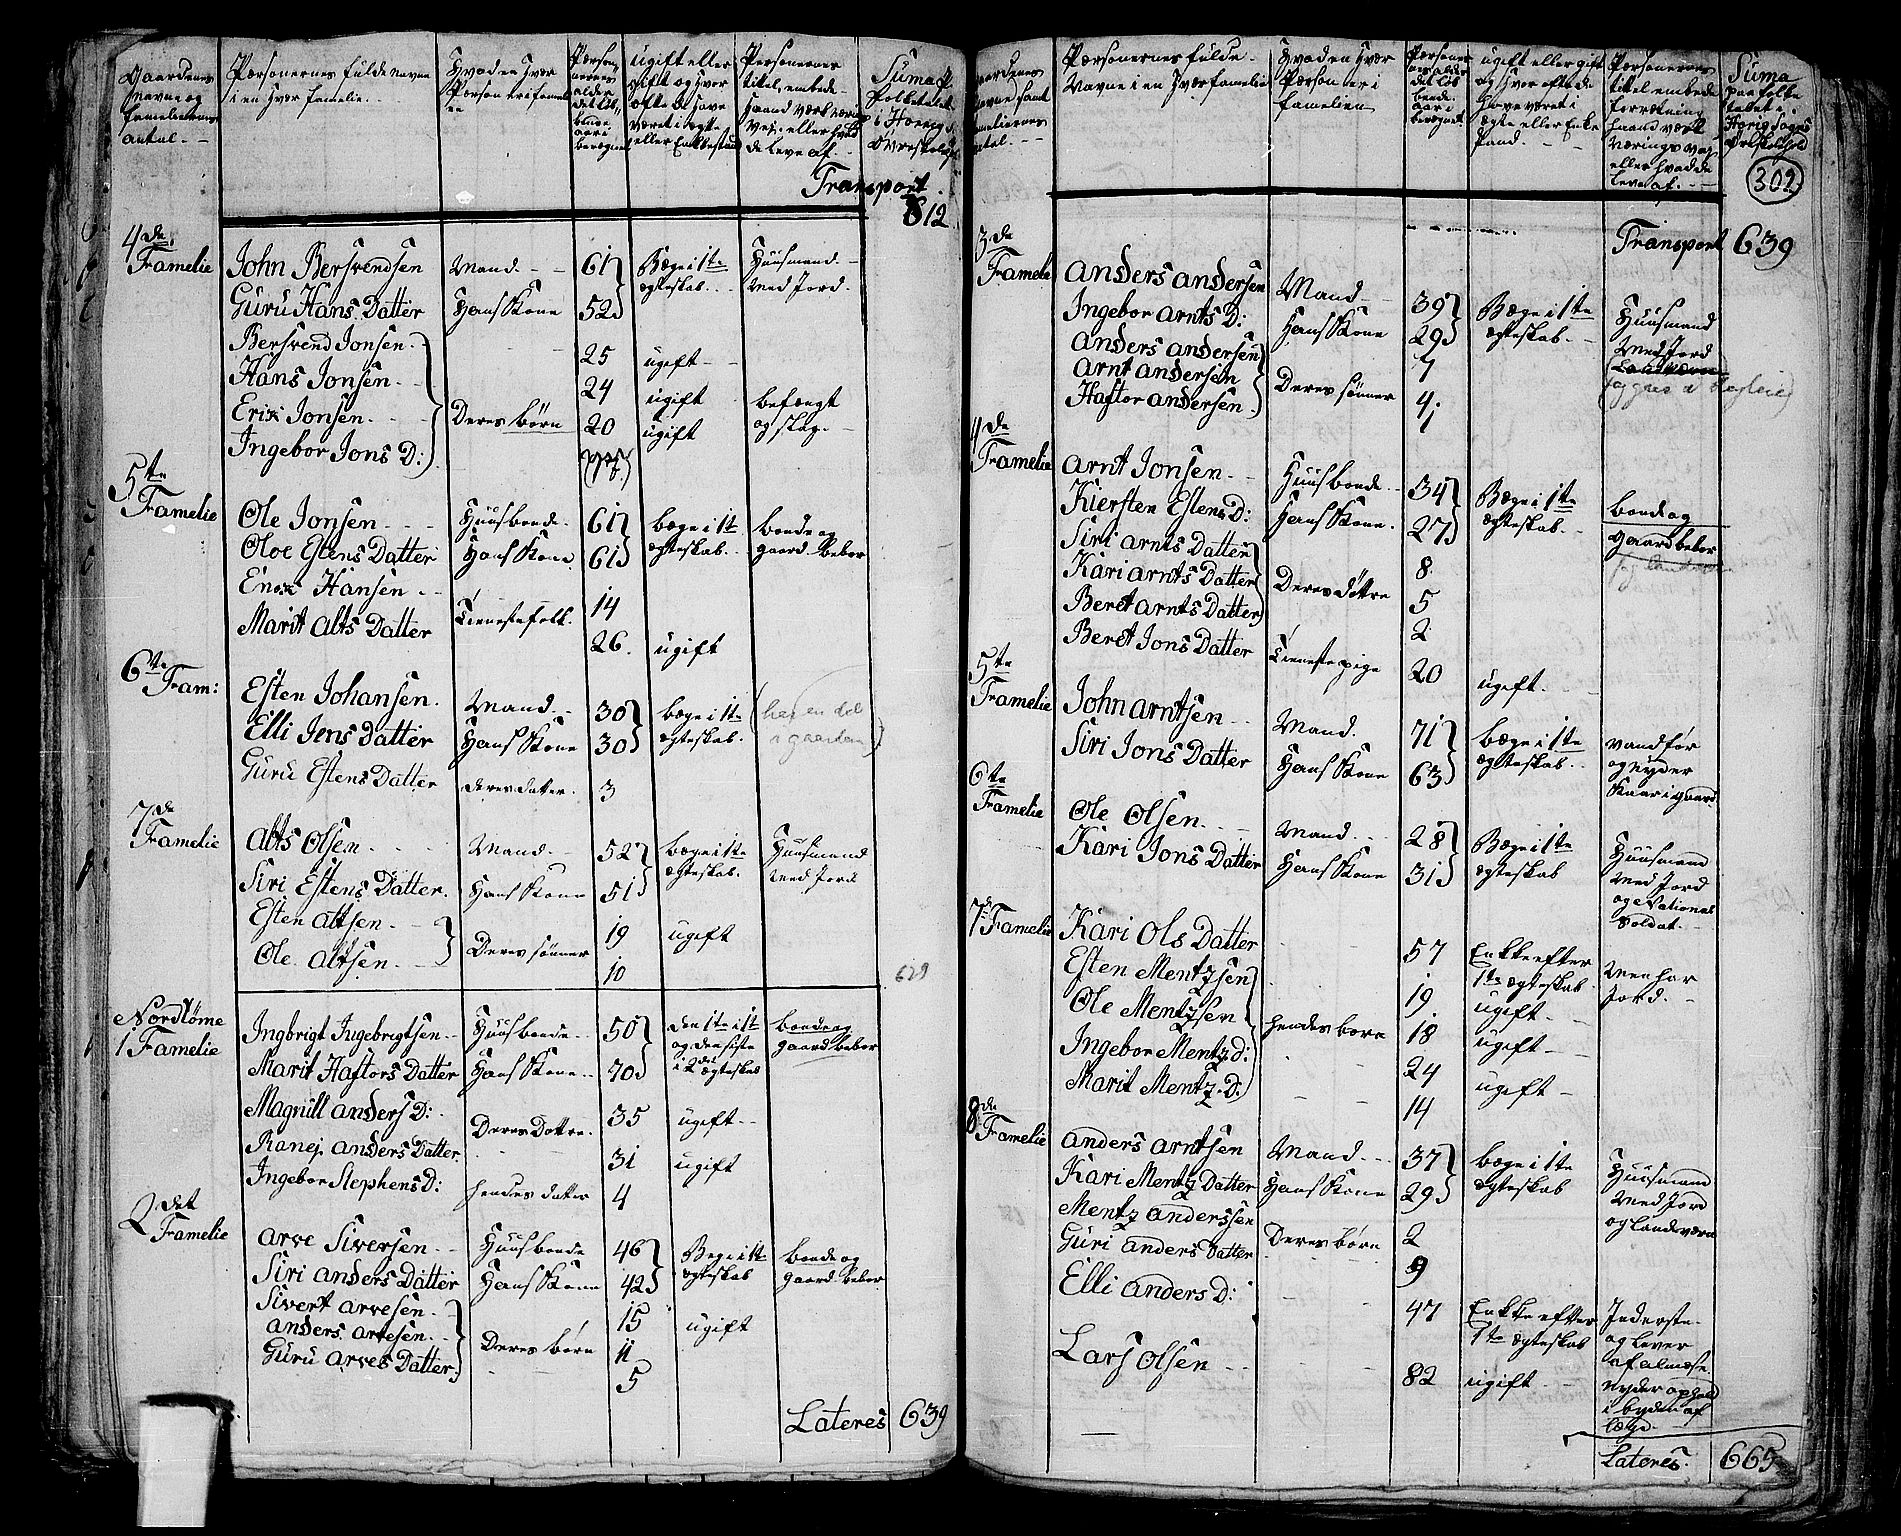 Gaardenes Navne og Familiernes antal. | Personernes fulde Navne i en hver famelie. | Hvad en hver Person er i famelien | Personernes alder det løbende aar i beregnet | ugift eller gift og hvor ofte de have været i ægte eller Enkestand | Personernes titel, embede, haand værk næring Vei, eller hvad de leve af. | Suma paa folketalet i Horrig Sogns Øvreskolehold
Transport 612
4de Famelie
John Bersvendsen | Mand | 61 | Begge i 1te ægteskab | Huusmand med Jord
Guru Hans Datter | Hans Kone | 52
Bersvend Jonsen | 25 | ugift
Hans Jonsen | Deres børn | 24 | ugift | befægt og slag
Erik Jonsen | 20 | ugift
Ingebor Jons D:
5te Famelie
Ole Jonsen | Huusbonde | 61 | begge i 1te ægteskab | bonde og gaard beboer
Oloe Estens Datter | Hans Kone | 61
Enok Hansen | Tienestefolk | 14
Marit Alts Datter | 26 | ugift
6te Fam:
Esten Johansen | Mand | 30 | begge i 1te ægteskab | (her en del i gaarden)
Elli Jens Datter | Hans Kone | 30
Guru Estens Datter | deres datter | 3
7de Famelie
Alts Olsen | Mand | 52 | begge i 1te ægteskab | Huusmand med Jord
Siri Estens Datter | Hans Kone | 51
Esten Altsen | Deres sønner | 19 | ugift
Ole Altsen | 10
629
Nordlöme
1 Famelie
Ingbrigt Ingebrigtsen | Huusbonde | 50 | den 1te i 1te og den siste i 2det ægteskab | bonde og gaard beboer
Marit Haftors Datter | Hans Kone | 70
Magnill Anders D: | Deres Døttre | 35 | ugift
Ranej Anders Datter | 31 | ugift
Ingebor Stephens D: | hendes datter | 4
2det Famelie
Arve Siversen | Huusbonde | 46 | Begge i 1te ægteskab | bonde og gaard beboer
Siri Anders Datter | Hans Kone | 42
Sivert Arvesen | Deres børn | 15 | ugift
Anders Arvesen | 11
Guru Arves Datter | 5
Lateres 639
Gaardenes Navne samt Familiernes antal. | Personernes fulde Navne i en hver famelie | Hvad en hver Person er i famelien | Personernes alder det løbende aar i beregnet | ugift eller gift og hvor ofte de have været i ægte eller Enkestand | Personernes titel embede forretning haand værk nærings vej eller hvad de leve af. | Suma paa folketalet i Horrig Sogns Øvreskolehold
302
Transport 639
3de Famelie
Anders Andersen | Mand | 39 | Begge i 1te ægteskab | Huusmand med Jord
Ingebor Arnts D: | Hans Kone | 29
Anders Andersen | Deres sønner | 7
Arnt Andersen | 4
Haftor Andersen | 1
4de Famelie
Arnt Jonsen | Huusbonde | 34 | Begge i 1te ægteskab | bonde og gaard beboer
Kiersten Estens D: | Hans Kone | 27
Siri Arnts Datter | Deres døttre | 8
Kari Arnts Datter | 5
Beret Arnts Datter | 2
Beret Jons Datter | Tieneste pige | 20 | ugift
5te Famelie
John Arntsen | Mand | 71 | begge i 1te ægteskab | vandfør og nyder kaar i gaard
Siri Jons Datter | Hans Kone | 63
6te Famelie
Ole Olsen | Mand | 28 | Begge i 1te ægteskab | Huusmand med Jord og National Soldat
Kari Jons Datter | Hans Kone | 31
7de Famelie
Kari Ols Datter | 57 | Enke efter 1te ægteskab | Men har Jord
Esten Mentzsen | hendes børn | 19 | ugift
Ole Mentzsen | 18 | ugift
Ingebor Mentz D: | 24 | ugift
Marit Mentz D: | 14
8de Famelie
Anders Arntsen | Mand | 37 | begge i 1te ægteskab | Huusmand med Jord og landværn
Kari Mentz Datter | Hans Kone | 29
Mentz Anderssen | Deres børn | 2
Guri Anders Datter | 9
Elli Anders D: | 47 | Enke efter 1te ægteskab | Inderste og lever af almisse
Lars Olsen | 82 | ugift | nyder ophold i bygden af lægd
Lateres. 665